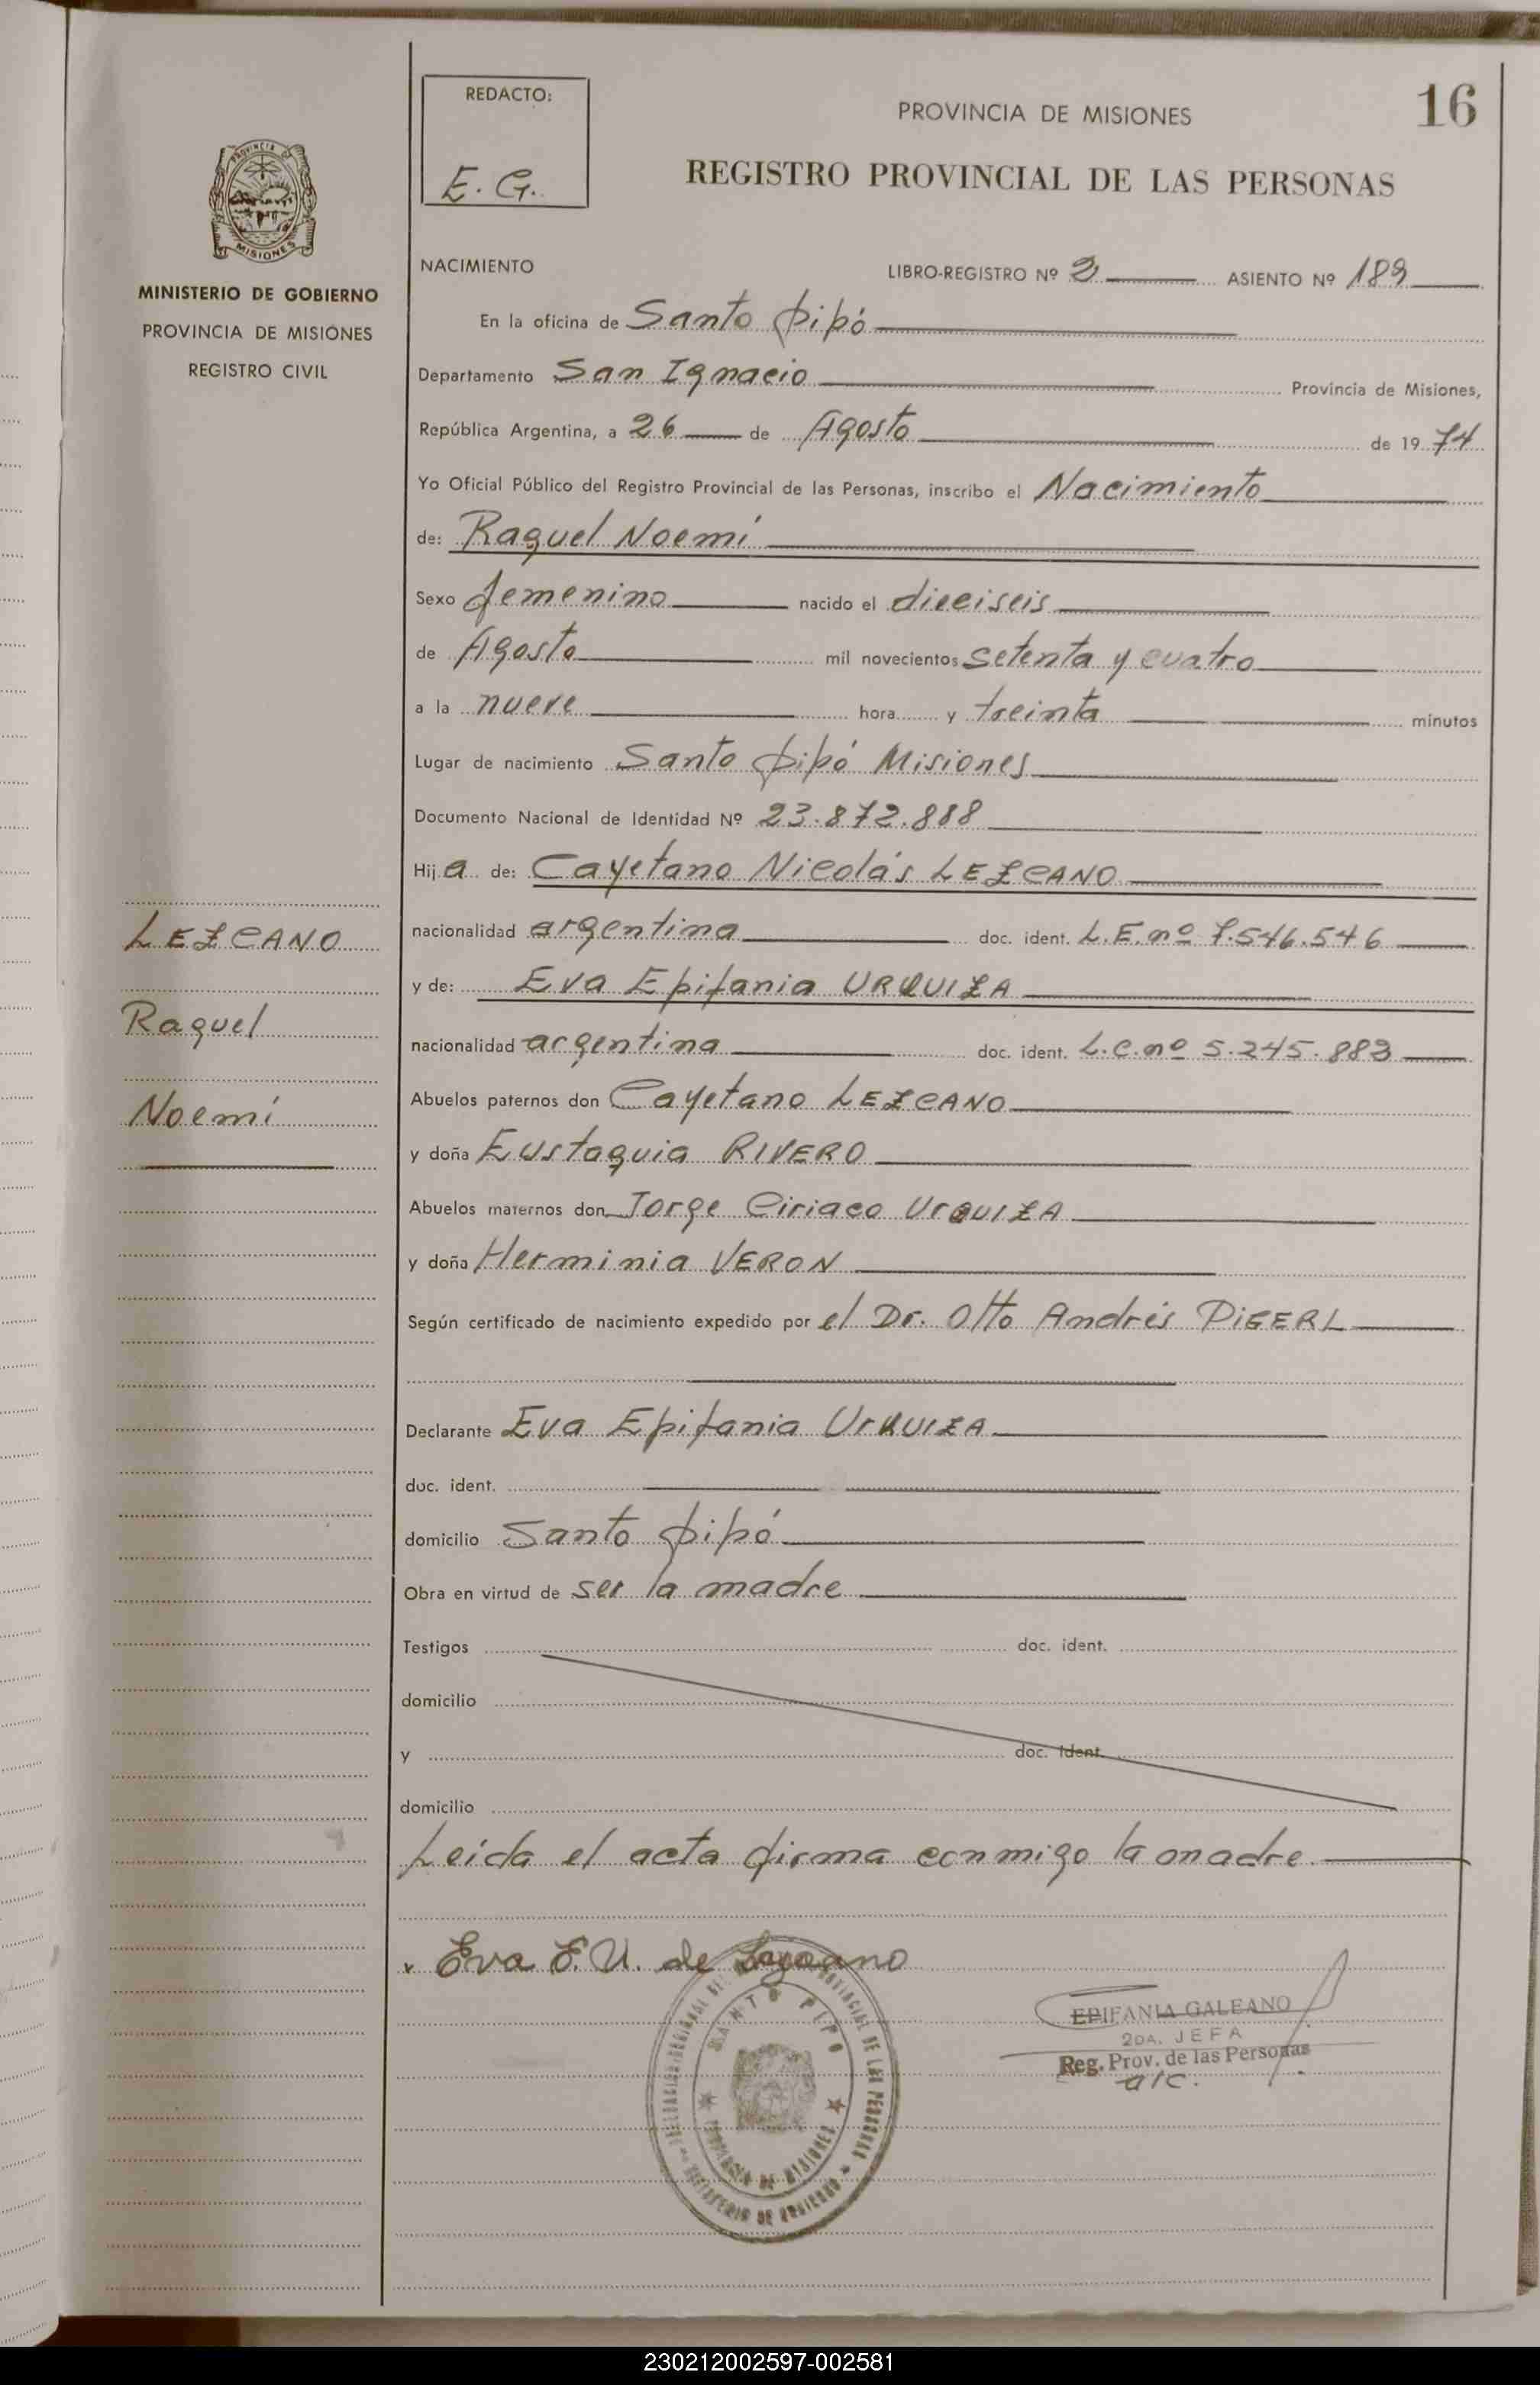 16
REDACTO:
E. G.
PROVINCIA DE MISIONES
REGISTRO PROVINCIAL DE LAS PERSONAS
PROVINCIA DE
MISIONES
MINISTERIO DE GOBIERNO
PROVINCIA DE MISIONES
REGISTRO CIVIL
NACIMIENTO LIBRO-REGISTRO Nº 2 ASIENTO Nº 189
En la oficina de Santo Pipó
Departamento San Ignacio Provincia de Misiones,
República Argentina, a 26 de Agosto de 1974
Yo Oficial Público del Registro Provincial de las Personas, inscribo el Nacimiento
de: Raquel Noemí
Sexo femenino nacido el dieciseis
de Agosto mil novecientos setenta y cuatro
a la nueve hora y treinta minutos
Lugar de nacimiento Santo Pipó Misiones
Documento Nacional de Identidad Nº 23.872.888
Hija de: Cayetano Nicolás LEZCANO
nacionalidad argentina doc. ident. L.E. nº 7.546.546
y de: Eva Epifania URQUIZA
nacionalidad argentina doc. ident. L.C. nº 5.245.883
Abuelos paternos don Cayetano LEZCANO
y doña Eustaquia RIVERO
Abuelos maternos don Jorge Ciriaco UrQUIZA
y doña Herminia VERON
Según certificado de nacimiento expedido por el Dr. Otto Andrés DIGERL
Declarante Eva Epifania UrQUIZA
doc. ident.
domicilio Santo Pipó
Obra en virtud de ser la madre
Testigos doc. ident.
domicilio
y doc. ident.
domicilio
Leida el acta firma conmigo la madre
LEZCANO
Raquel
Noemí
Eva E. U. de Lezcano
SANTO PIPO
PROVINCIA DE MISIONES
MINISTERIO DE GOBIERNO
EPIFANIA GALEANO
2DA. JEFA
Reg. Prov. de las Personas
a/c.
230212002597-002581